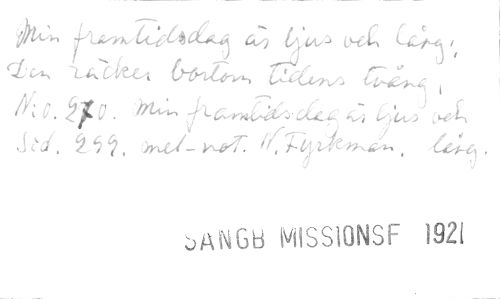 Min framtidsdag är ljus och lång,
Den räcker bortom tidens tvång,
N:o. 270. Min framtidsdag är ljus och
Sid. 299. mel-not. N. Frykman. lång.
SANGB MISSIONSF 1921